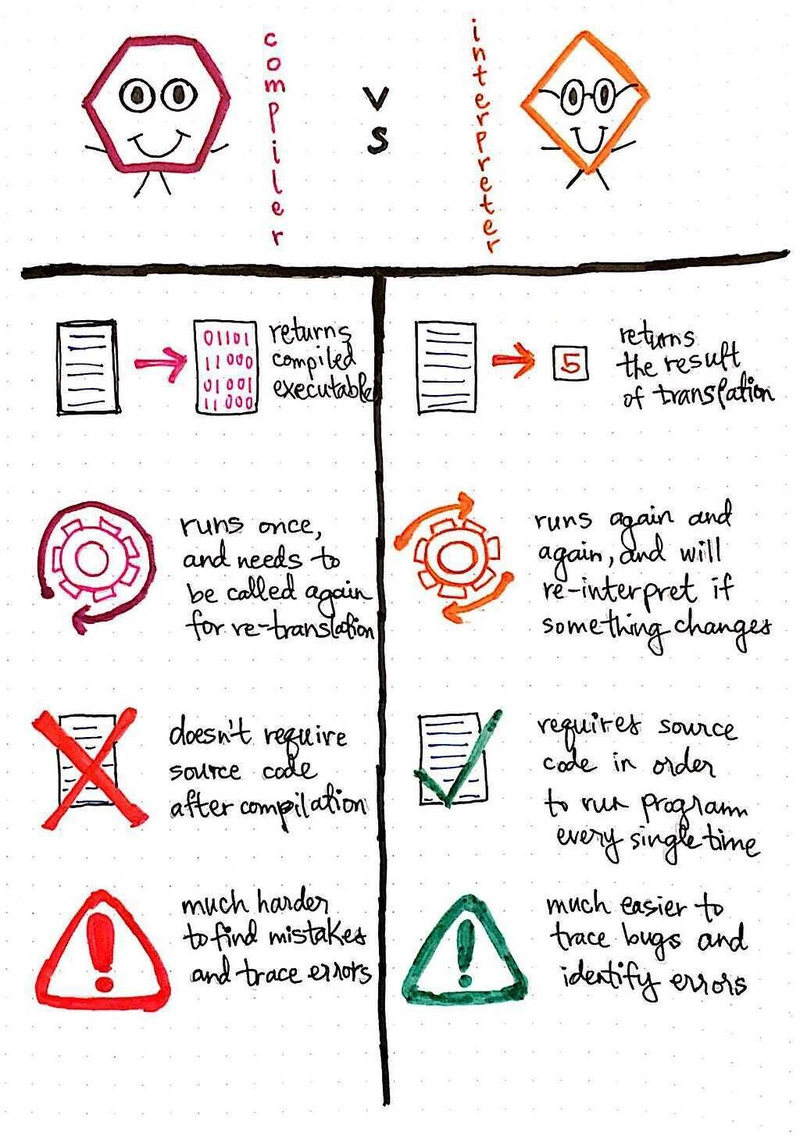 compiler
VS
interpreter
01101
11000
01001
11000
returns
compiled
executable
5
returns
the result
of translation
runs once,
and needs to
be called again
for re-translation
runs again and
again, and will
re-interpret if
something changes
doesn't require
source code
after compilation
requires source
code in order
to run programm
every single time
!
much harder
to find mistakes
and trace errors
!
much easier to
trace bugs and
identify errors